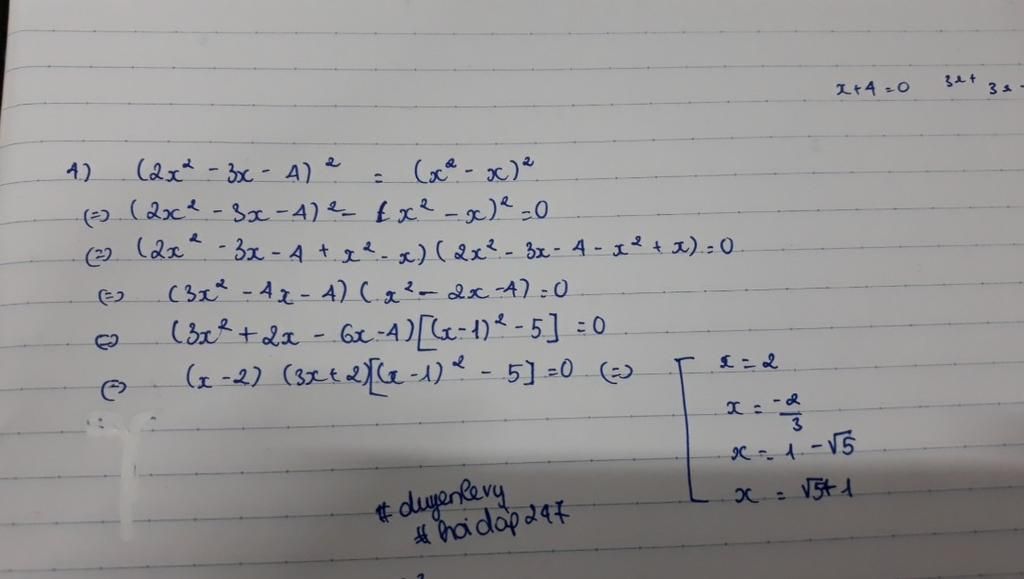 x+4=0 3x+ 3x-
4) (2x² - 3x - 4)² = (x² - x)²
(=) (2x² - 3x - 4)² - (x² - x)² = 0
(=) (2x² - 3x - 4 + x² - x) (2x² - 3x - 4 - x² + x) = 0
(=) (3x² - 4x - 4) (x² - 2x - 4) = 0
(=) (3x² + 2x - 6x - 4) [(x-1)² - 5] = 0
(=) (x-2) (3x+2) [(x-1)² - 5] = 0 (=) [ x = 2
x = -2/3
x = 1 - √5
x = √5 + 1
#duyenRevy
#hoidap247